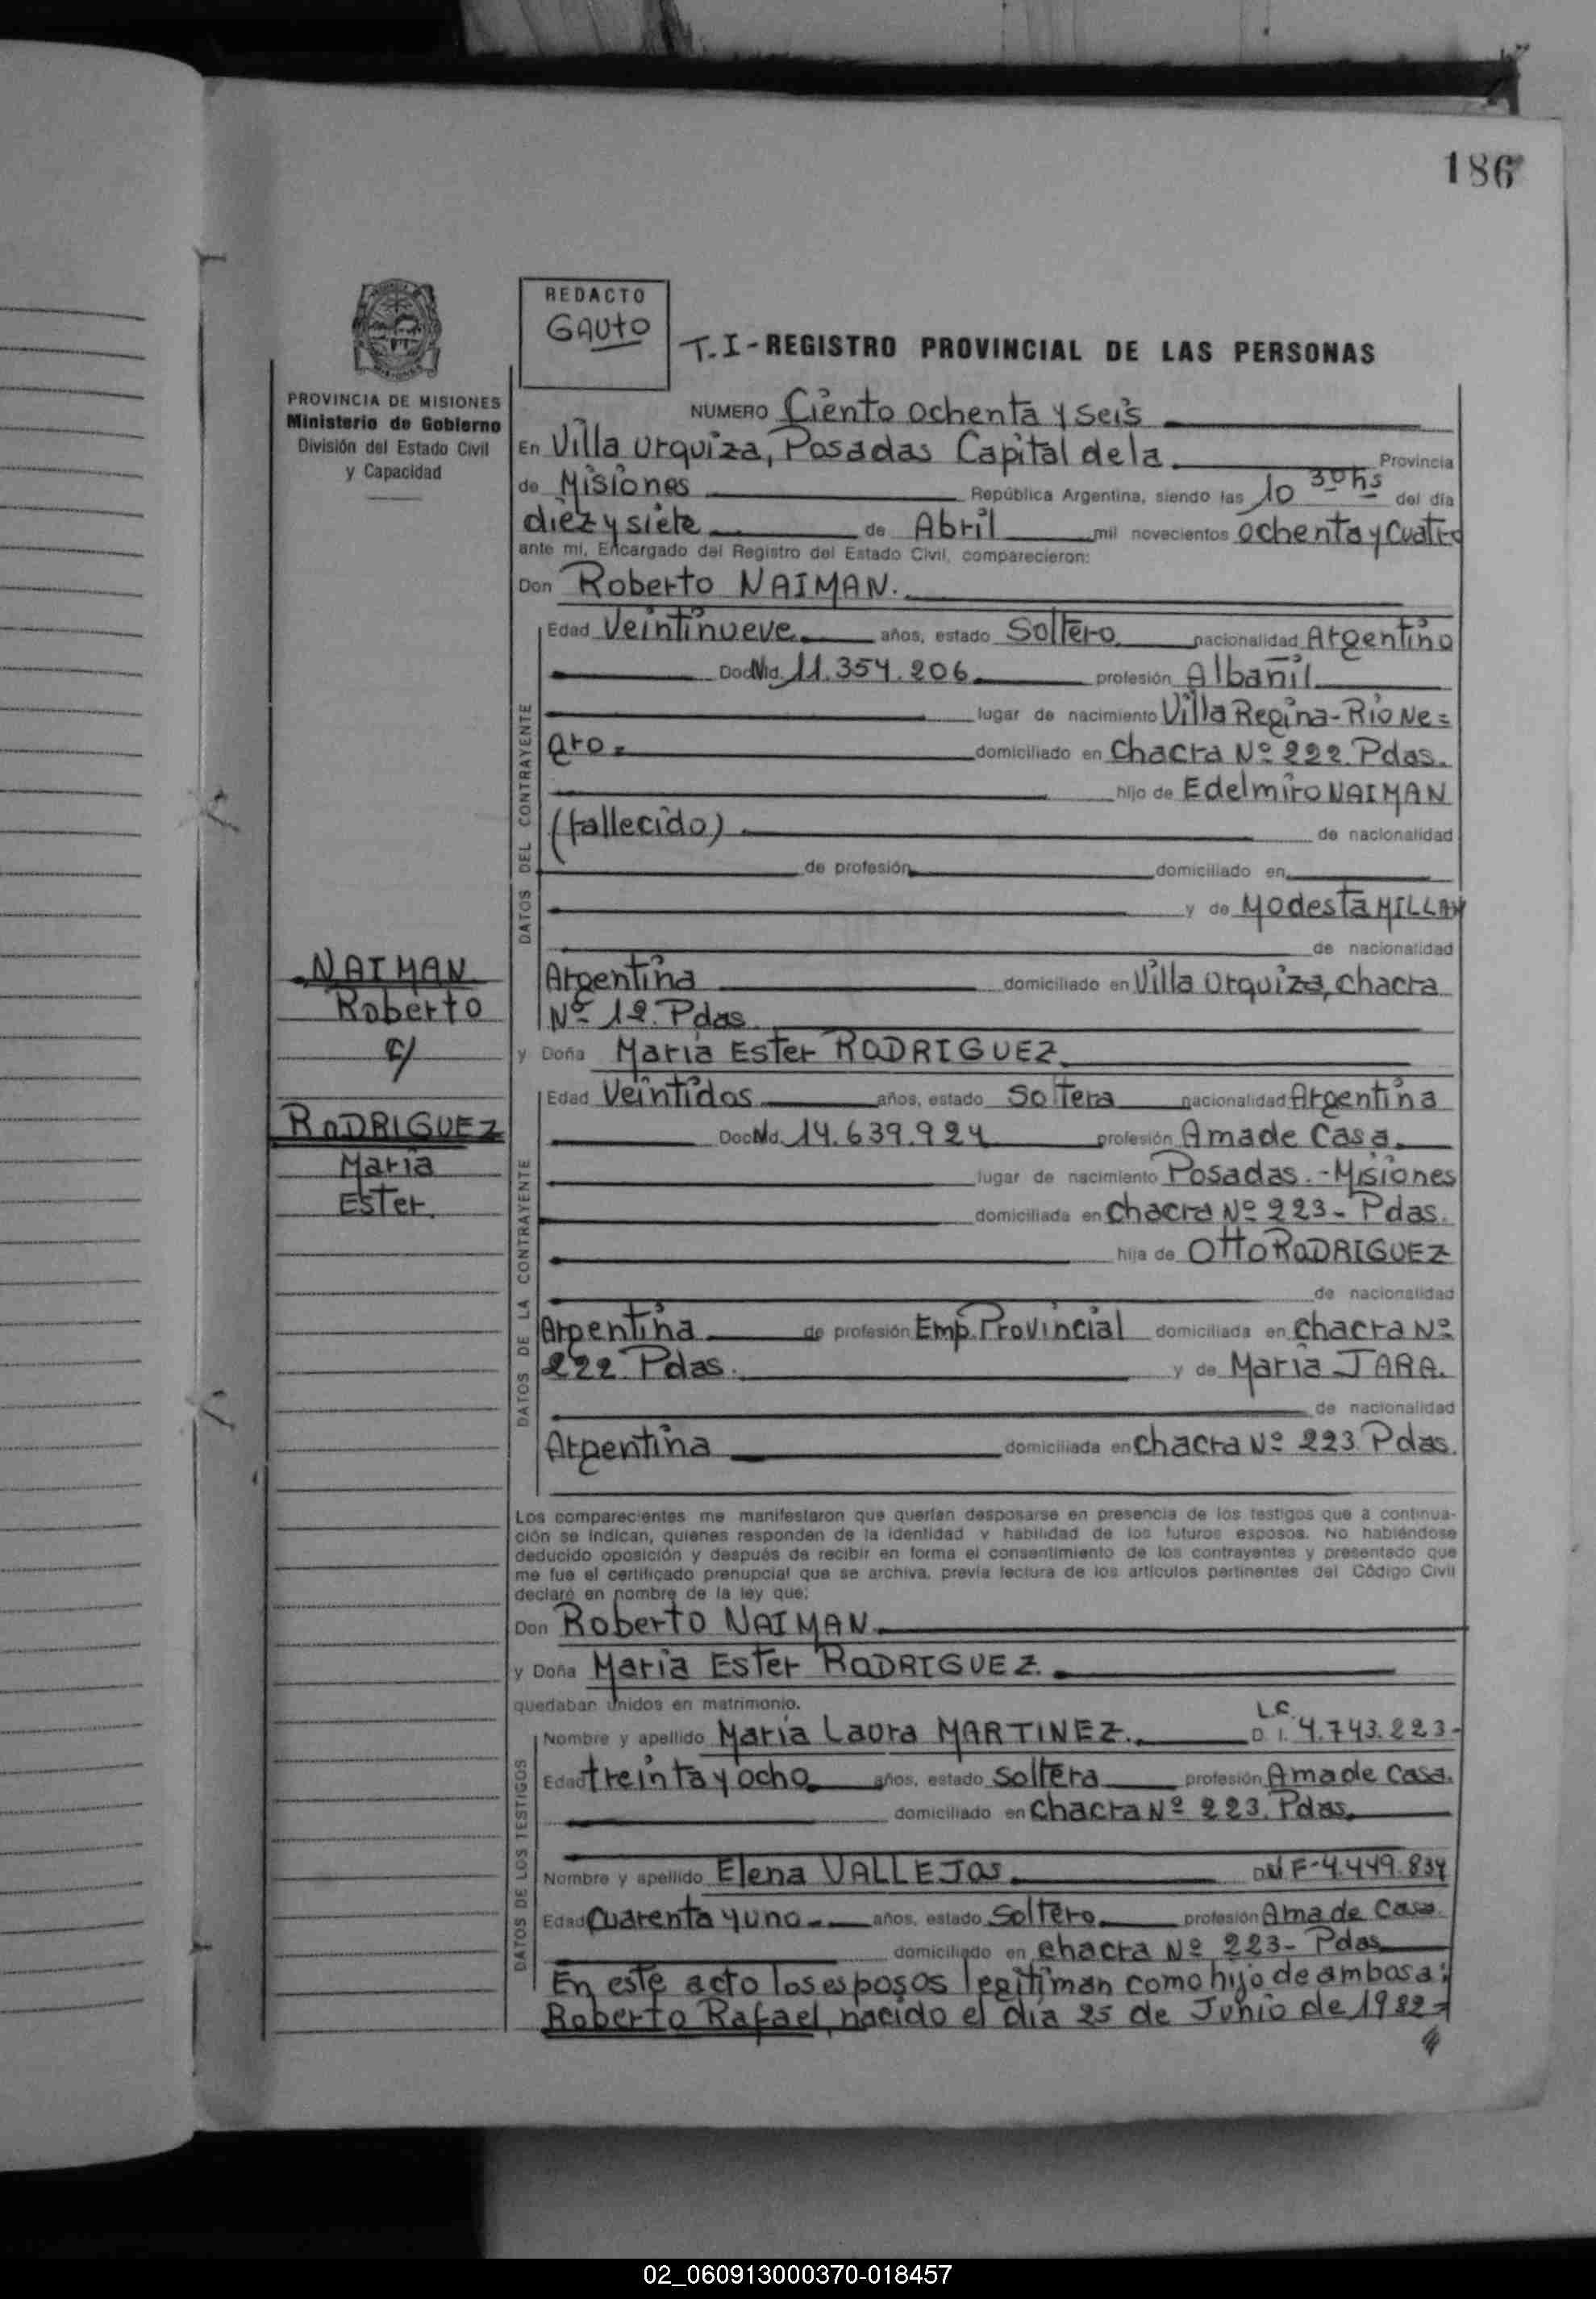 186
REDACTO
GAUTO
T.I - REGISTRO PROVINCIAL DE LAS PERSONAS
PROVINCIA DE MISIONES
Ministerio de Gobierno
División del Estado Civil
y Capacidad
NUMERO Ciento ochenta y seis
En Villa Urquiza, Posadas Capital de la Provincia
de Misiones República Argentina, siendo las 10 30 hs del día
diez y siete de Abril mil novecientos ochenta y cuatro
ante mí, Encargado del Registro del Estado Civil, comparecieron:
Don Roberto NAIMAN.
Edad Veintinueve años, estado Soltero nacionalidad Argentino
Doc Nd. 11.354.206 profesión Albañil
lugar de nacimiento Villa Regina - Rio Ne=
gro. domiciliado en Chacra Nº 222. Pdas.
hijo de Edelmiro NAIMAN
(fallecido) de nacionalidad
de profesión domiciliado en
y de Modesta MILLAN
de nacionalidad
Argentina domiciliado en Villa Urquiza, chacra
Nº 12. Pdas.
y Doña Maria Ester RODRIGUEZ
Edad Veintidos años, estado Soltera nacionalidad Argentina
Doc Nd. 14.639.924 profesión Ama de Casa.
lugar de nacimiento Posadas. - Misiones
domiciliada en Chacra Nº 223 - Pdas.
hija de Otto RODRIGUEZ
de nacionalidad
Argentina de profesión Emp. Provincial domiciliada en chacra Nº
222. Pdas. y de Maria JARA.
de nacionalidad
Argentina domiciliada en chacra Nº 223. Pdas.
DATOS DEL CONTRAYENTE
DATOS DE LA CONTRAYENTE
NAIMAN
Roberto
c/
RODRIGUEZ
Maria
Ester.
Los comparecientes me manifestaron que querían desposarse en presencia de los testigos que a continua-
ción se indican, quienes responden de la identidad y habilidad de los futuros esposos. No habiéndose
deducido oposición y después de recibir en forma el consentimiento de los contrayentes y presentado que
me fue el certificado prenupcial que se archiva, previa lectura de los artículos pertinentes del Código Civil
declaré en nombre de la ley que:
Don Roberto NAIMAN
y Doña Maria Ester RODRIGUEZ.
quedaban unidos en matrimonio.
L.C.
Nombre y apellido Maria Laura MARTINEZ. D. I. 4.743.223-
Edad treinta y ocho años, estado Soltera profesión Ama de Casa.
domiciliado en Chacra Nº 223. Pdas.
Nombre y apellido Elena VALLEJOS F-4.449.834
Edad Cuarenta y uno años, estado Soltero profesión Ama de Casa.
domiciliado en chacra Nº 223 - Pdas
DATOS DE LOS TESTIGOS
En este acto los esposos legitiman como hijo de ambos a:
Roberto Rafael, nacido el día 25 de Junio de 1982-
02_060913000370-018457